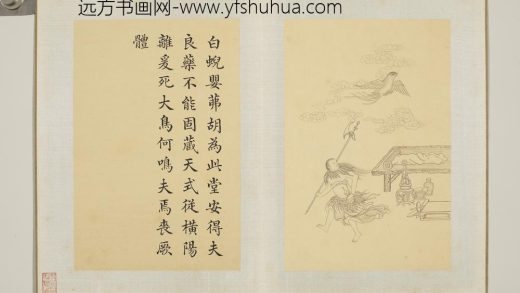 远方书画网-www.yfshuhua.com
白蜺嬰茀胡為此堂安得夫
良藥不能固臧天式從橫陽
離爰死大鳥何鳴夫焉喪厥
體